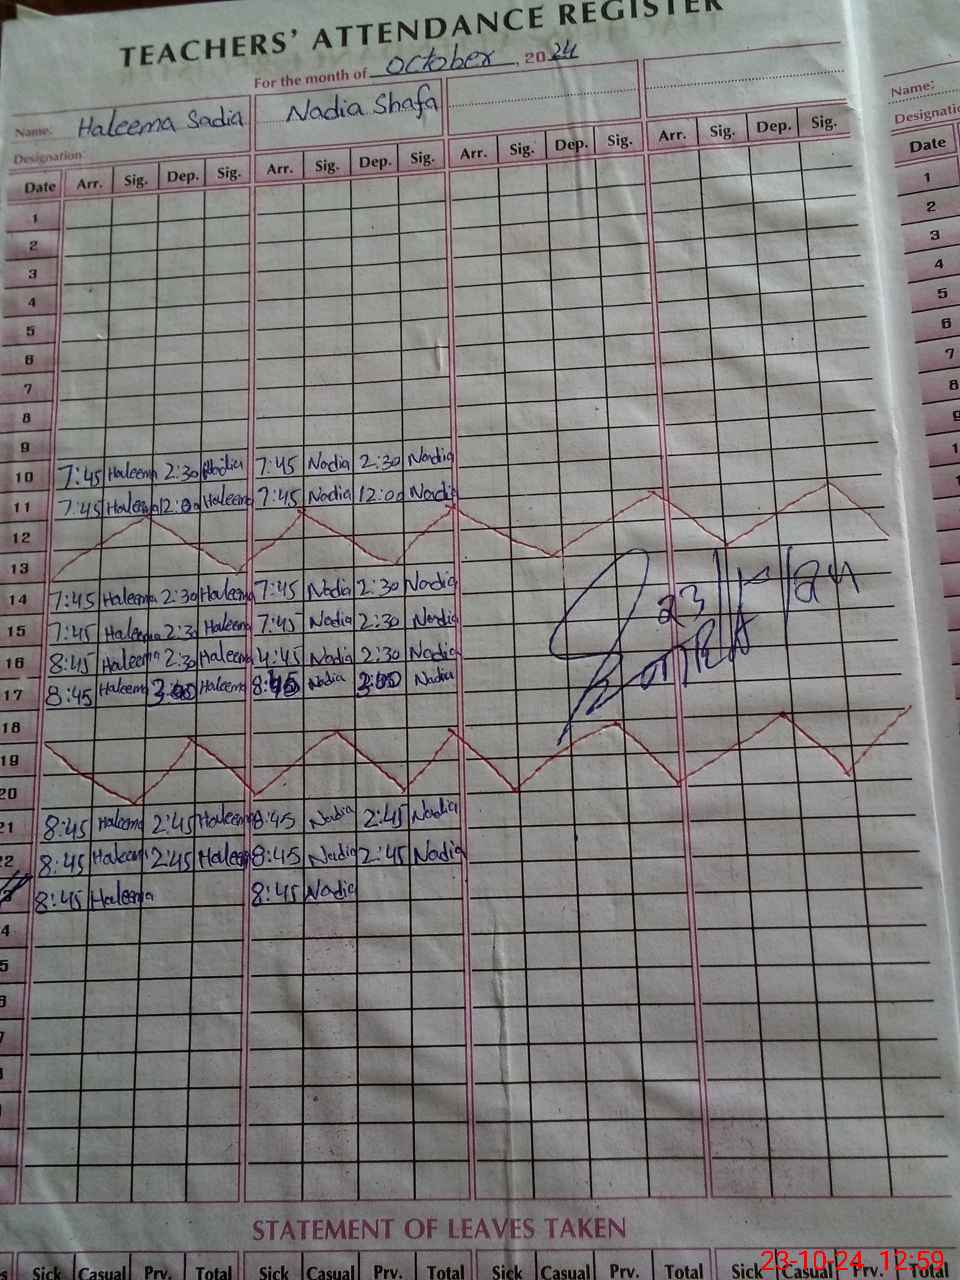 TEACHERS' ATTENDANCE REGISTER
For the month of October, 2024
Name: Haleema Sadia Nadia Shafa
Designation:
Date Arr. Sig. Dep. Sig. Arr. Sig. Dep. Sig. Arr. Sig. Dep. Sig. Arr. Sig. Dep. Sig.
1
2
3
4
5
6
7
8
9
10 7:45 Haleema 2:30 7:45 Nadia 2:30 Nadia
11 7:45 Haleema 12:00 Haleema 7:45 Nadia 12:00 Nadia
12
13
14 7:45 Haleema 2:30 Haleema 7:45 Nadia 2:30 Nadia
15 7:45 Haleema 2:30 Haleema 7:45 Nadia 2:30 Nadia
16 8:45 Haleema 2:30 Haleema 4:45 Nadia 2:30 Nadia
17 8:45 Haleema 3:00 Haleema 8:45 Nadia 3:00 Nadia
18
19
20
21 8:45 Haleema 2:45 Haleema 8:45 Nadia 2:45 Nadia
22 8:45 Haleema 2:45 Haleema 8:45 Nadia 2:45 Nadia
3 8:45 Haleema 8:45 Nadia
4
5
6
7
STATEMENT OF LEAVES TAKEN
Sick Casual Prv. Total Sick Casual Prv. Total Sick Casual Prv. Total Sick Casual Prv. Total
Name:
Date
1
2
3
4
5
6
7
8
23-10-24 12:59